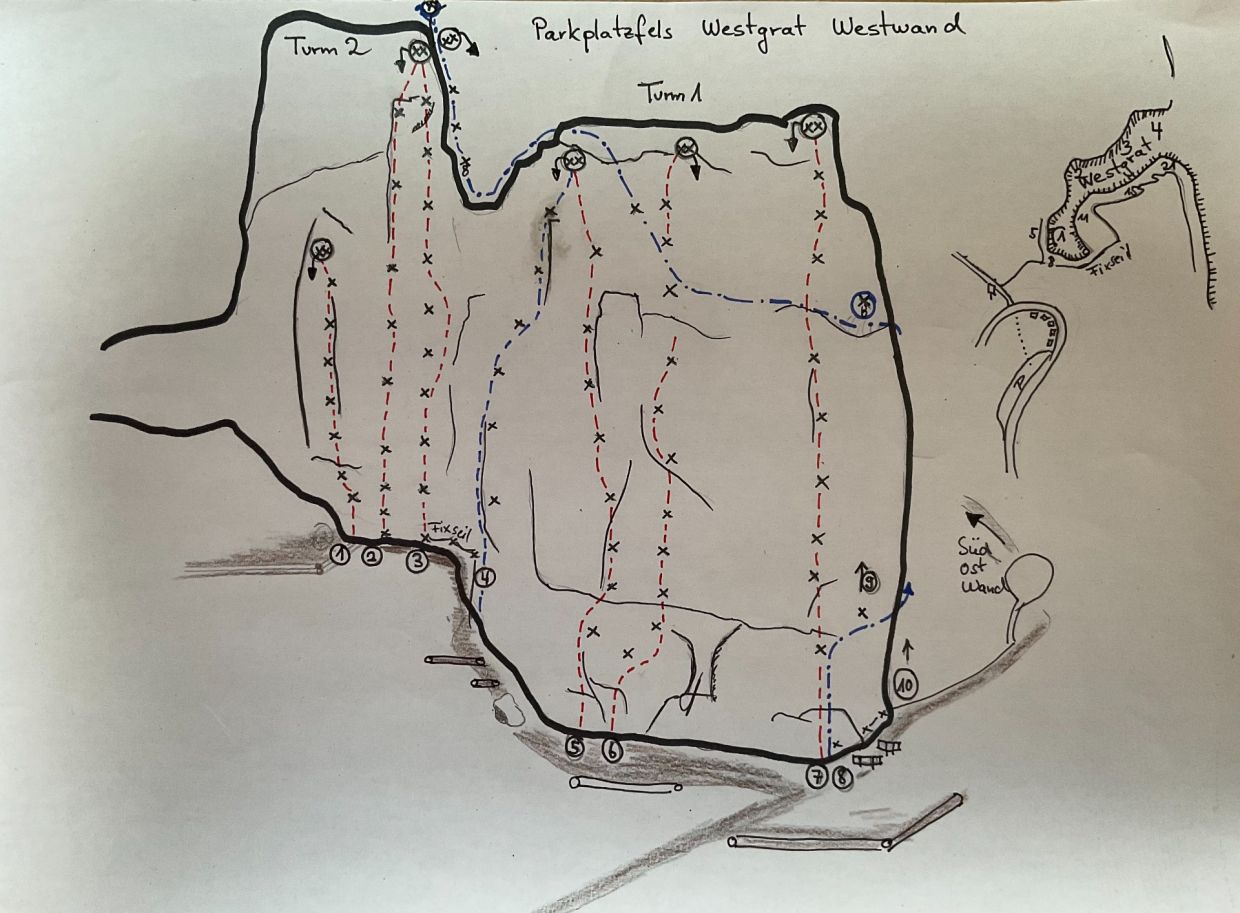 Parkplatzfels Westgrat Westwand
Turm 2
Turm 1
Westgrat
1
2
3
4
5
11
8
Fixseil
H
P
Fixseil
Süd
Ost
Wand
1
2
3
4
5
6
7
8
9
10